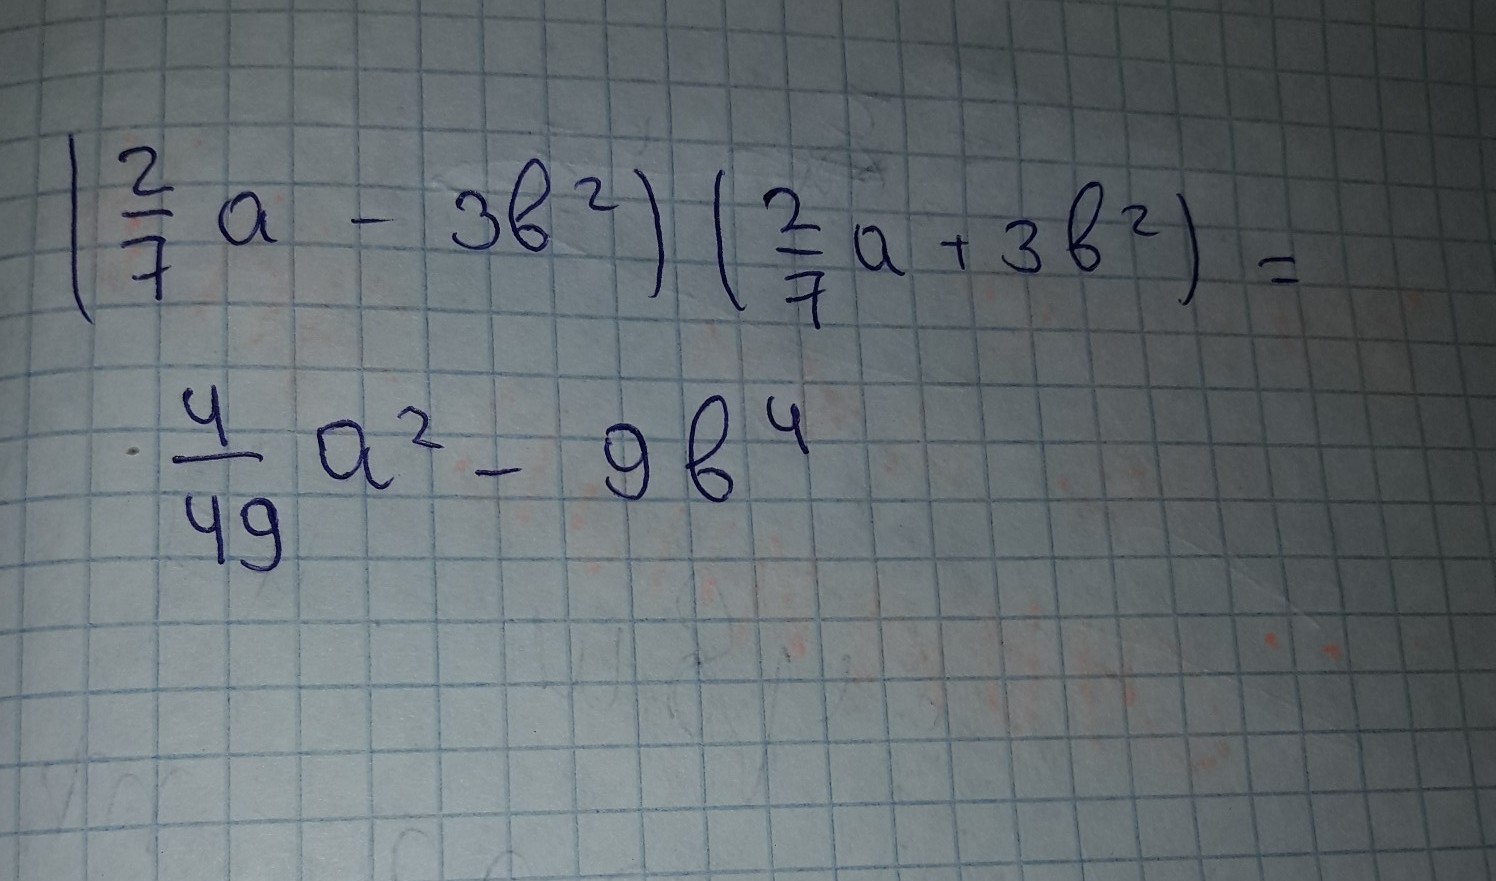 (2/7 a - 3в²)(2/7 a + 3в²) =
4/49 a² - 9в⁴